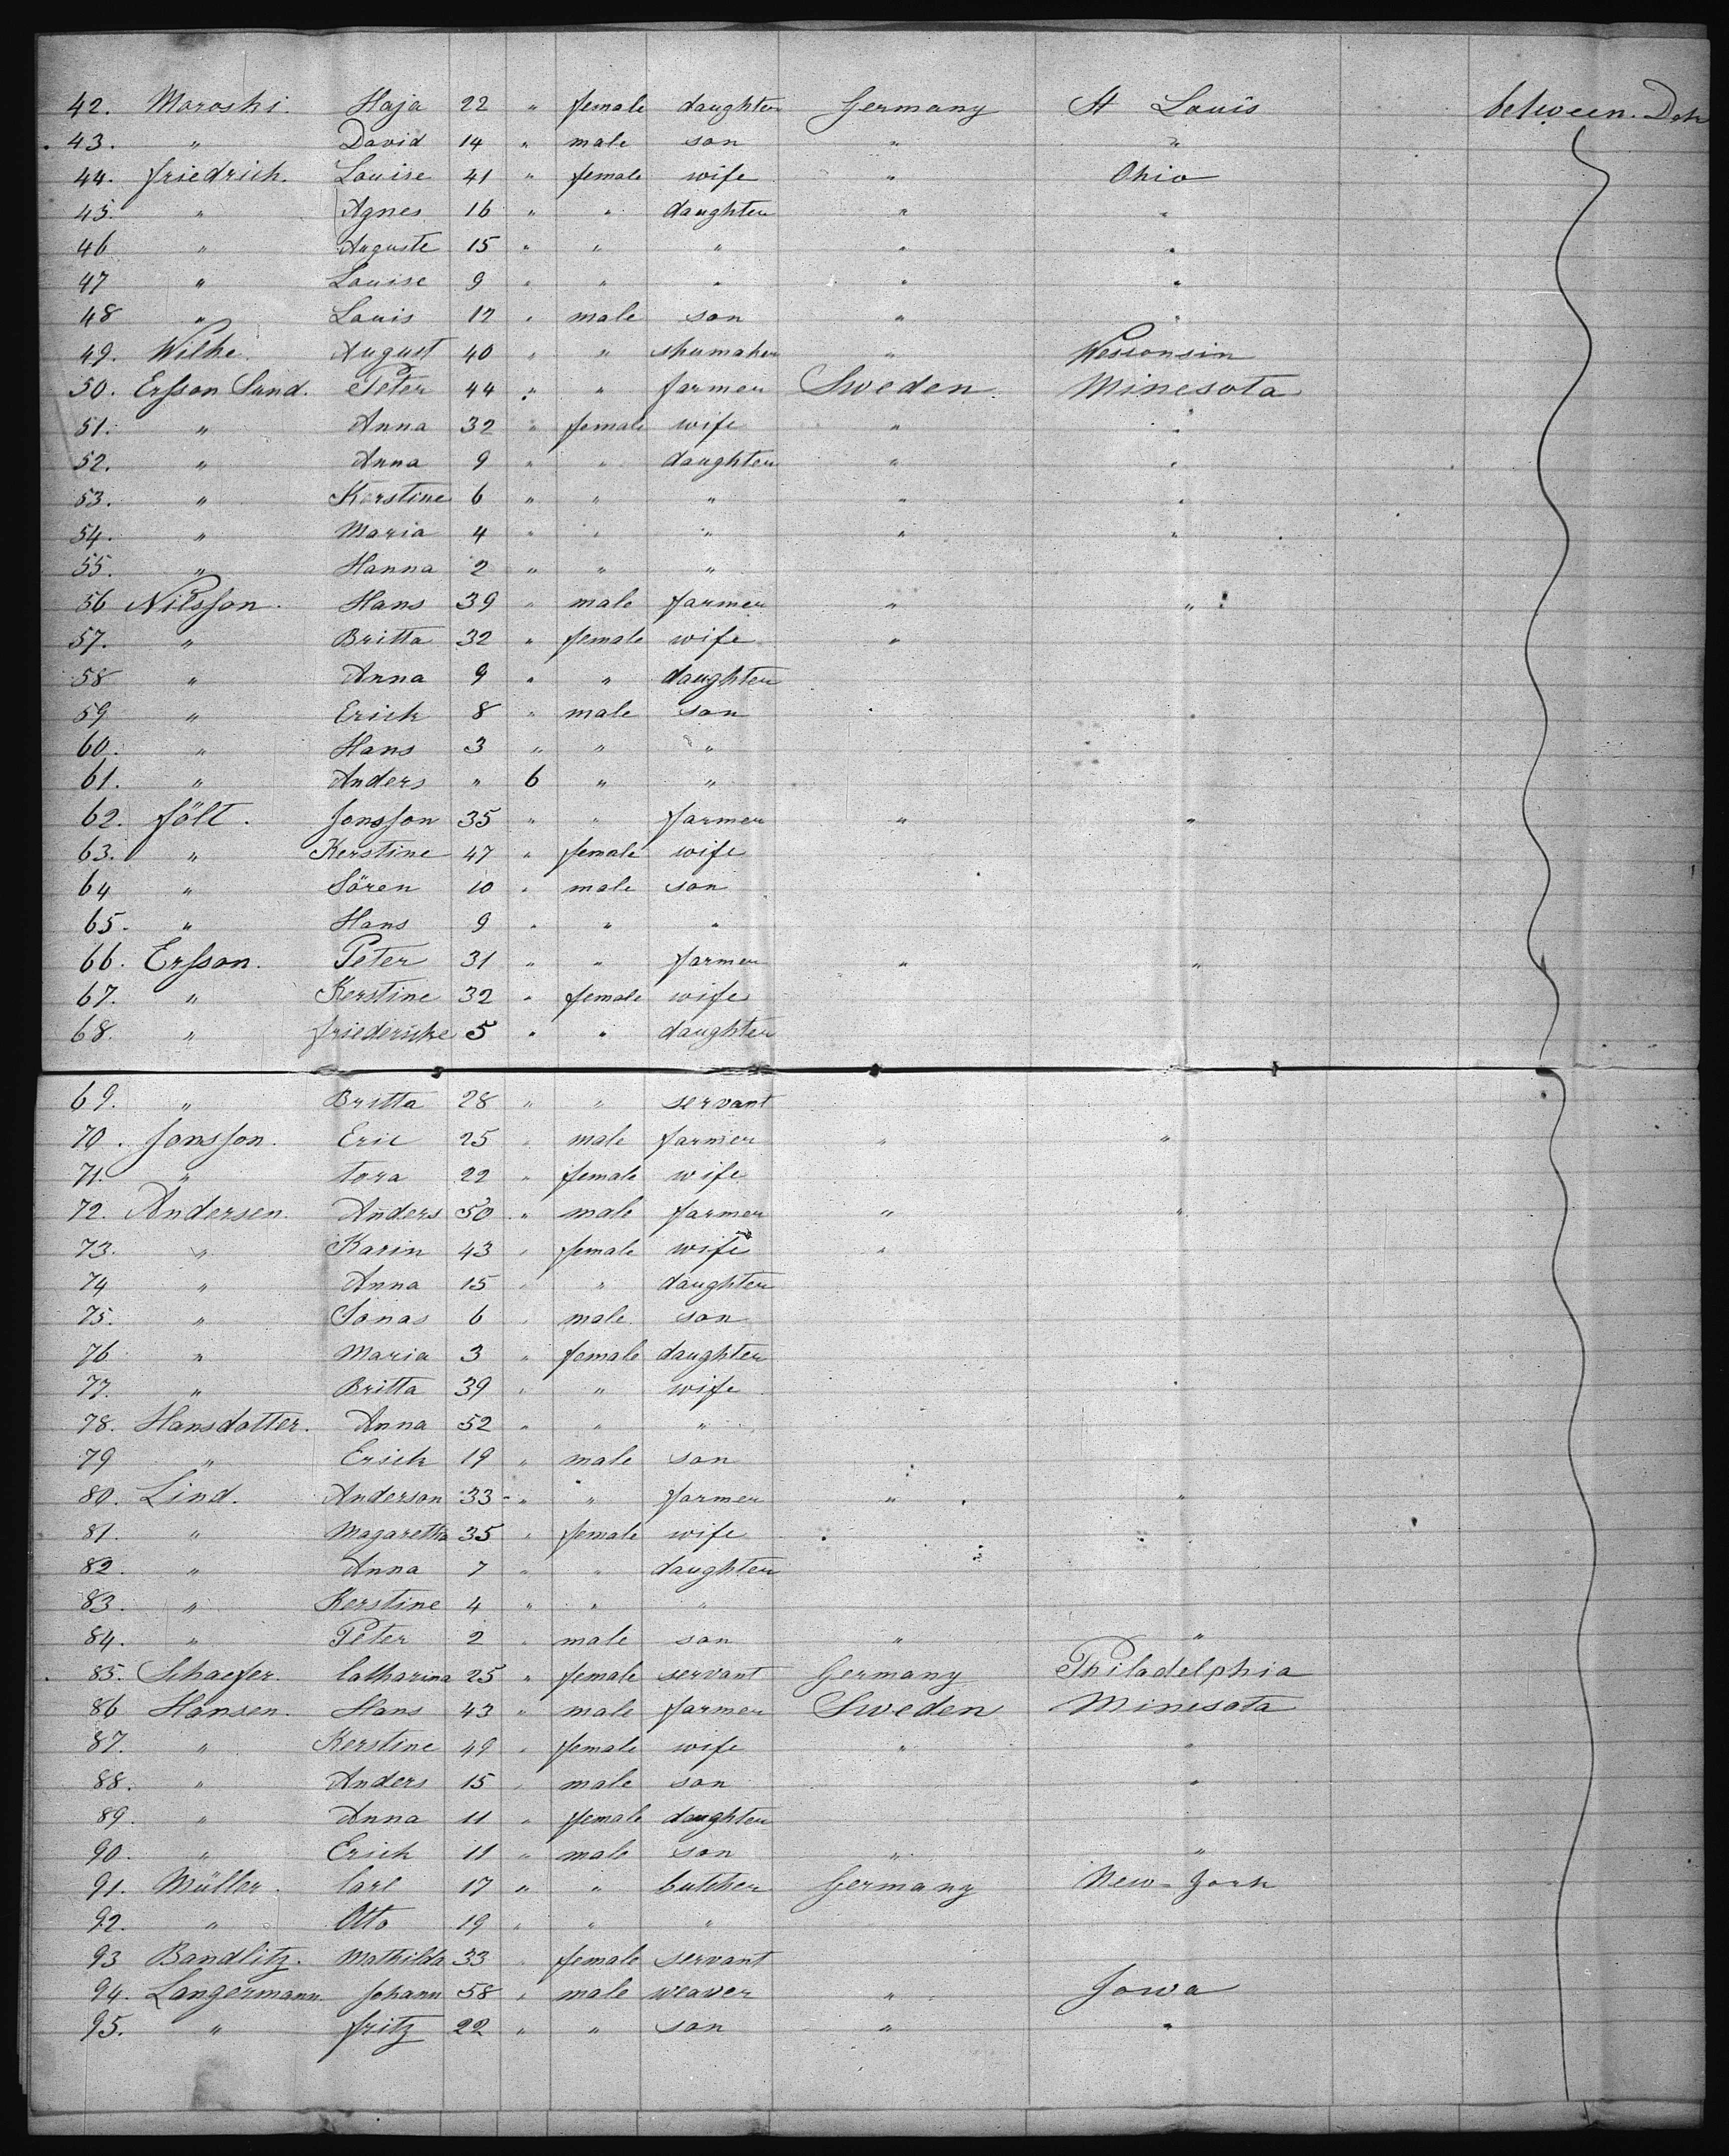 42. Maroski. Haja 22 " female daughter Germany St Louis between Deck
43. " David 14 " male son " "
44. Friedrich. Louise 41 " female wife " Ohio
45. " Agnes 16 " " daughter " "
46 " Auguste 15 " " " " "
47 " Louise 9 " " " " "
48 " Louis 12 " male son " "
49. Wilke. August 40 " " shumaker " Wessonsin
50. Ersson Sund. Peter 44 " " farmer Sweden Minesota
51. " Anna 32 " female wife " "
52. " Anna 9 " " daughter " "
53. " Kerstine 6 " " " " "
54. " Maria 4 " " " " "
55. " Hanna 2 " " "
56 Nilsson. Hans 39 " male farmer " "
57. " Britta 32 " female wife "
58 " Anna 9 " " daughter
59 " Erich 8 " male son
60. " Hans 3 " " "
61. " Anders " 6 " "
62. Fält. Jonsson 35 " " farmer " "
63. " Kerstine 47 " female wife
64 " Sören 10 " male son
65. " Hans 9 " " "
66. Ersson. Peter 31 " " farmer " "
67. " Kerstine 32 " female wife
68. " Friedericke 5 " " daughter
69. " Britta 28 " " servant
70. Jonsson. Eric 25 " male farmer " "
71. " tora 22 " female wife
72. Andersen. Anders 50 " male farmer " "
73. " Karin 43 " female wife "
74 " Anna 15 " " daughter
75. " Jonas 6 " male son
76 " Maria 3 " female daughter
77. " Britta 39 " " wife
78. Hansdotter. Anna 52 " " "
79 " Erich 19 " male son
80. Lind. Anderson 33 " " farmer " "
81. " Magaretha 35 " female wife
82. " Anna 7 " " daughter
83. " Kerstine 4 " " "
84. " Peter 2 " male son " "
85. Schaefer. Catharina 25 " female servant Germany Philadelphia
86 Hansen. Hans 43 " male farmer Sweden Minesota
87. " Kerstine 49 " female wife " "
88. " Anders 15 " male son "
89. " Anna 11 " female daughter
90. " Erich 11 " male son " "
91. Müller. Carl 17 " " butcher Germany New-York
92. " Otto 19 " " "
93 Bandlitz. Mathilda 33 " female servant
94. Langermann. Johann 58 " male weaver " Jowa
95. " Fritz 22 " " son " "